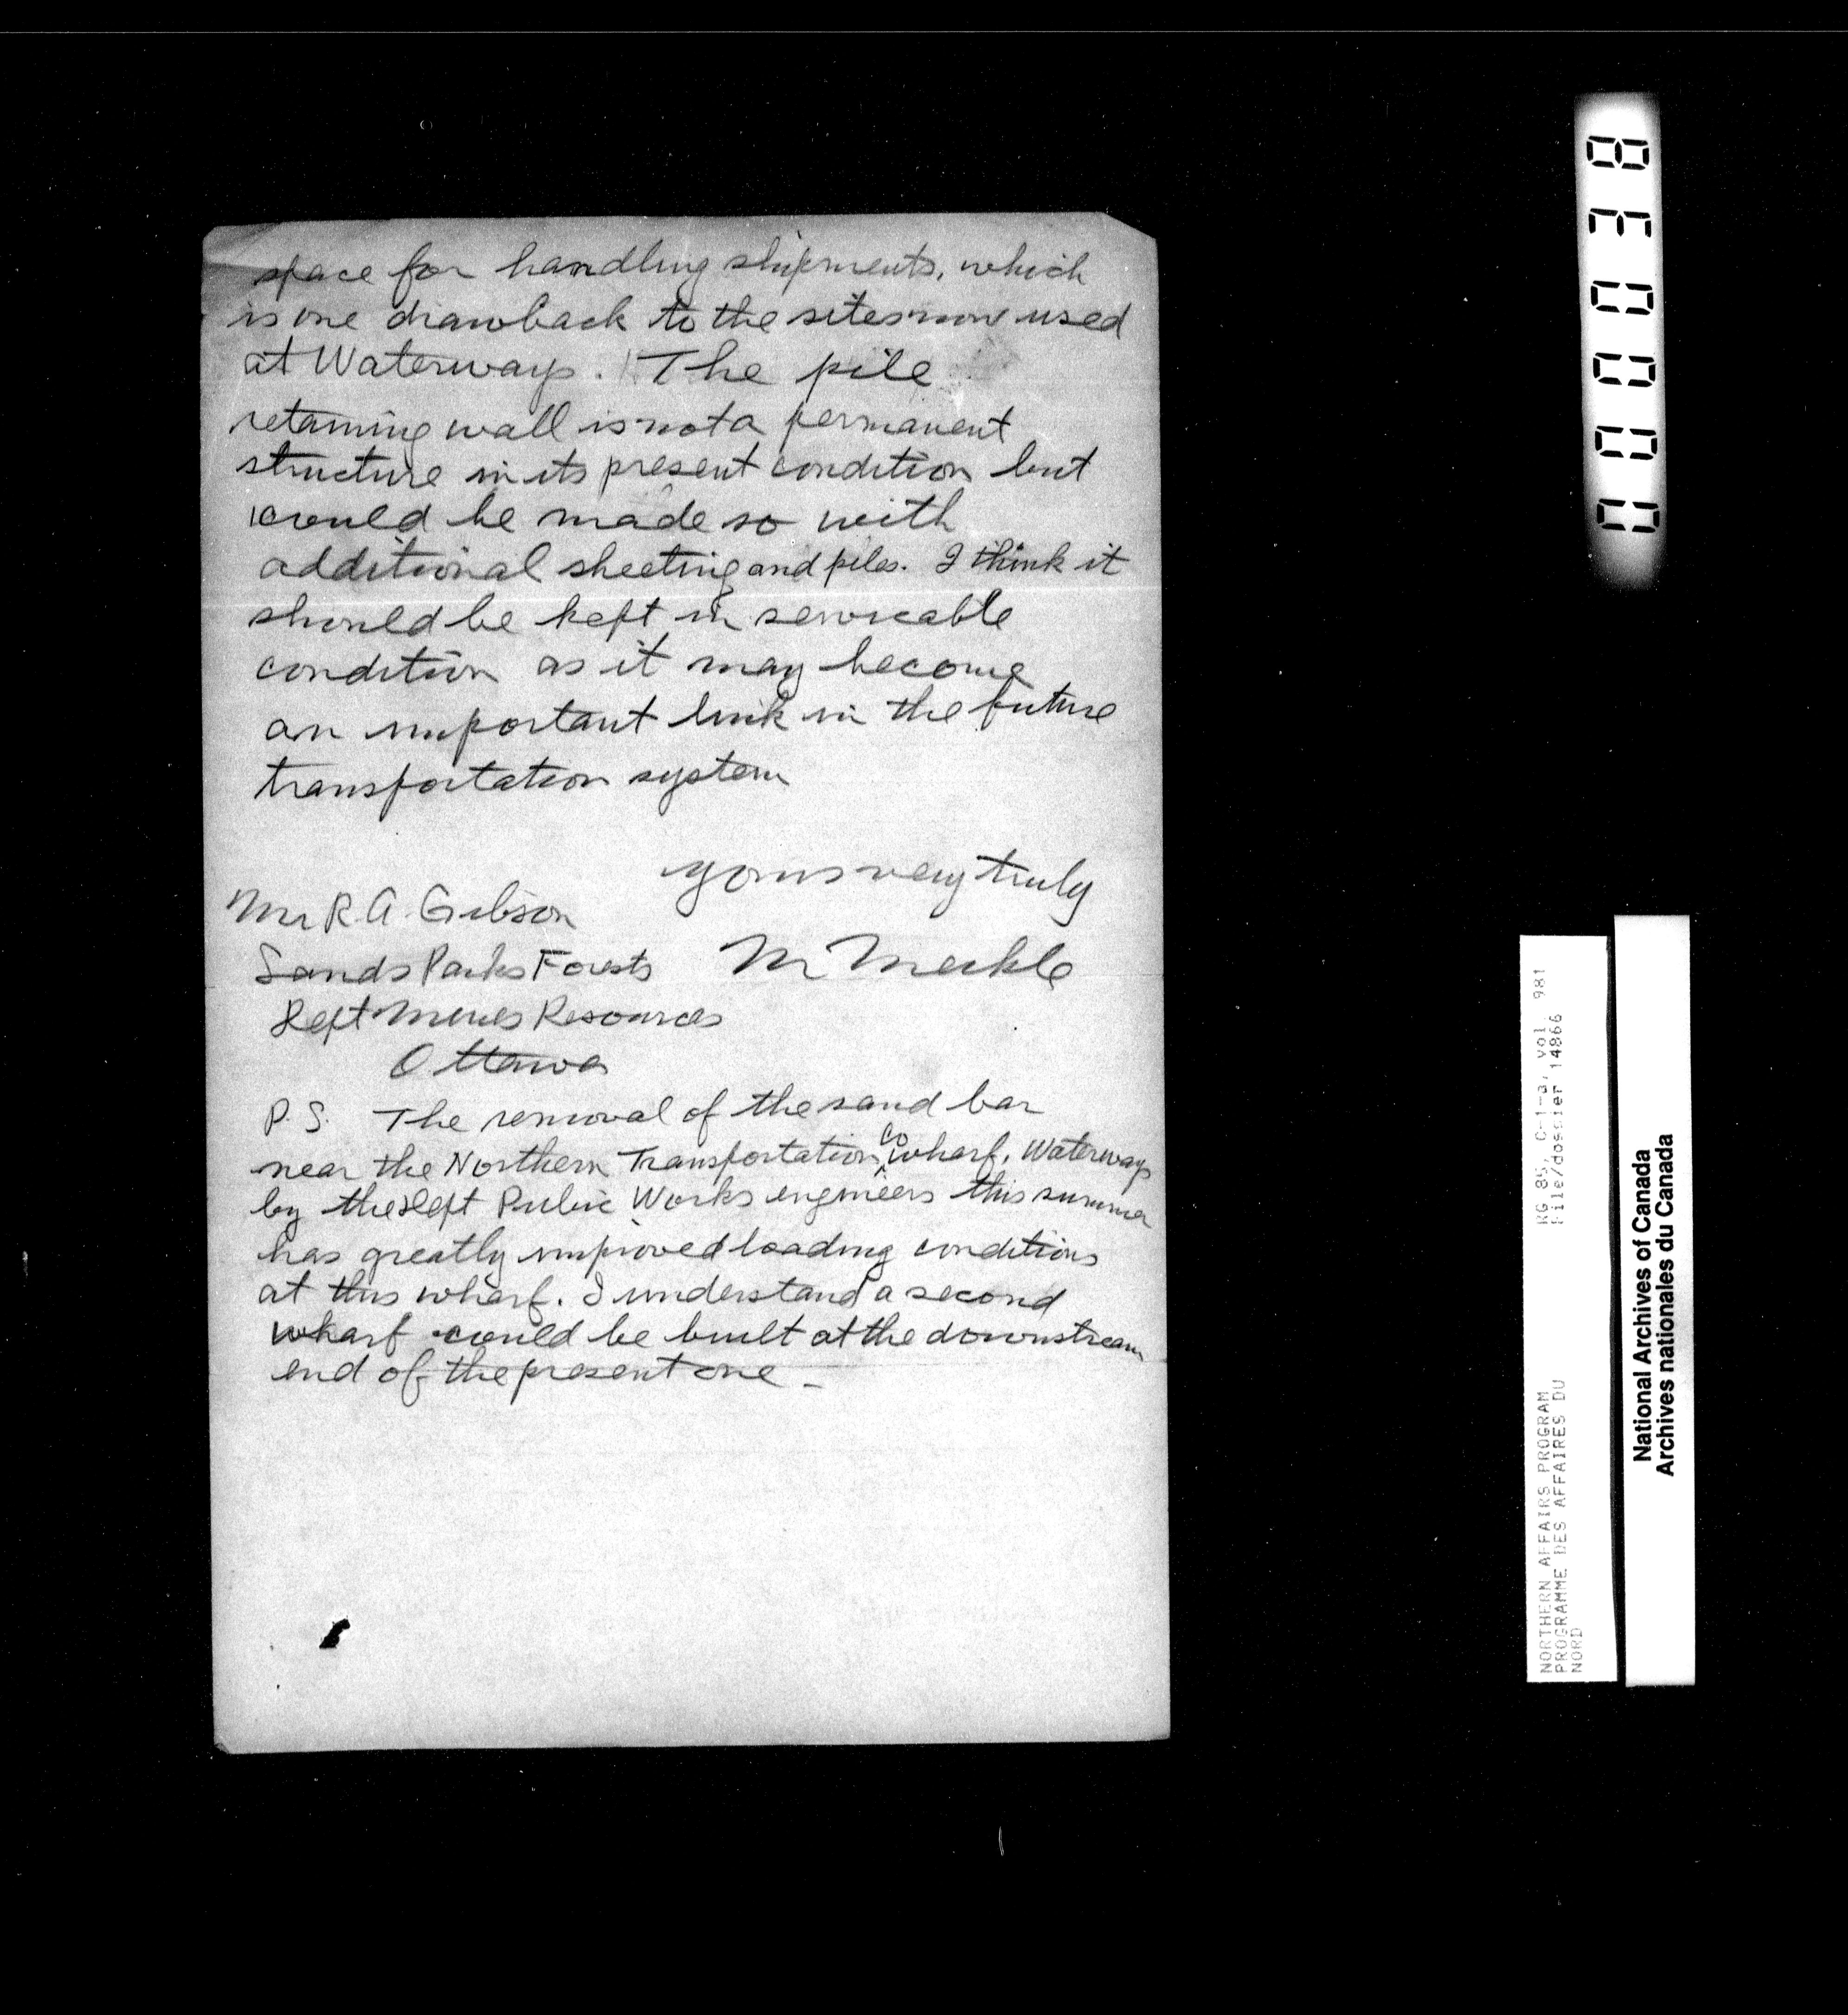 space for handling shipments, which
is one drawback to the sites now used
at Waterways. The pile
retaining wall is not a permanent
structure in its present condition but
could be made so with
additional sheeting and piles. I think it
should be kept in servicable
condition as it may become
an important link in the future
transportation system
yours very truly
M Meikle
Mr R. A. Gibson
Lands Parks Forests
Dept Mines Resources
Ottawa
P.S. The removal of the sand bar
near the Northern Transportation Co wharf, Waterways
by the Dept Public Works engineers this summer
has greatly improved loading conditions
at this wharf. I understand a second
wharf could be built at the downstream
end of the present one -
00038
RG 85, C-1-a, vol. 981
File/dossier 14866
NORTHERN AFFAIRS PROGRAM
PROGRAMME DES AFFAIRES DU
NORD
National Archives of Canada
Archives nationales du Canada